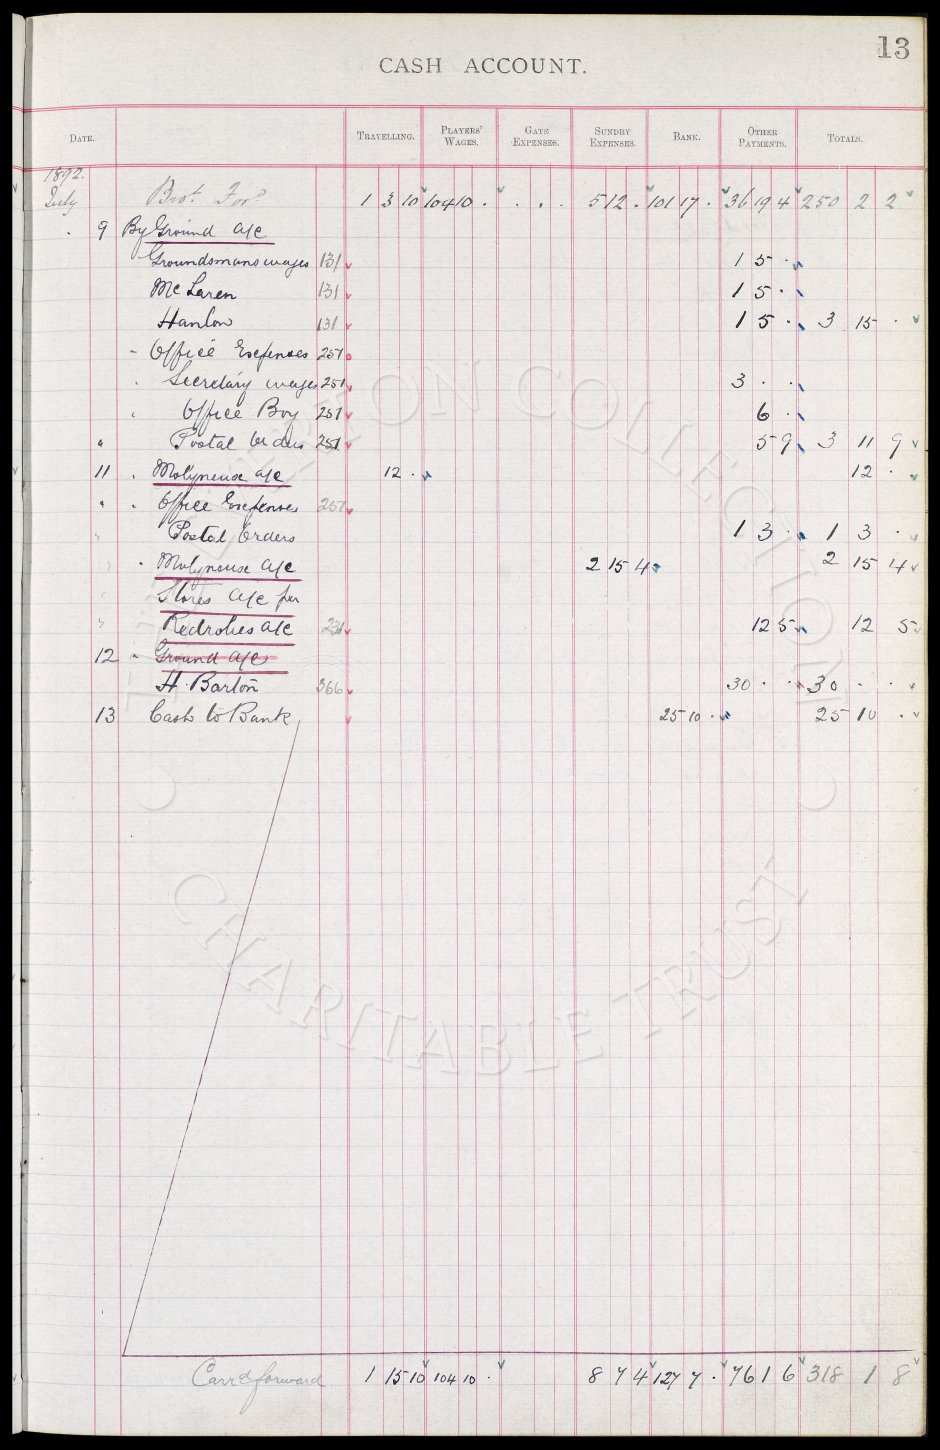 13
CASH ACCOUNT.
DATE. TRAVELLING. PLAYERS' WAGES. GATE EXPENSES. SUNDRY EXPENSES. BANK. OTHER PAYMENTS. TOTALS.
1892.
July Brot Ford 1 3 10 104 10 . . . . 5 12 . 101 17 . 36 19 4 250 2 2
" 9 By Ground a/c
Groundsmans wages 131 1 5 .
McLaren 131 1 5 .
Hanlon 131 1 5 . 3 15 .
" Office Expenses 251
" Secretary wages 251 3 . .
" Office Boy 251 6 .
" Postal Orders 251 5 9 3 11 9
11 " Molyneux a/c 12 . 12 .
" " Office Expenses 251
" Postal Orders 1 3 . 1 3 .
" " Molyneux a/c 2 15 4 2 15 4
" Stores a/c per
" Redrobes a/c 231 12 5 12 5
12 " Ground a/c
H. Barton 366 30 . . 30 . .
13 Cash to Bank 25 10 . 25 10 .
Carrd forward 1 15 10 104 10 . 8 7 4 127 7 . 76 1 6 318 1 8
CHARITABLE TRUST